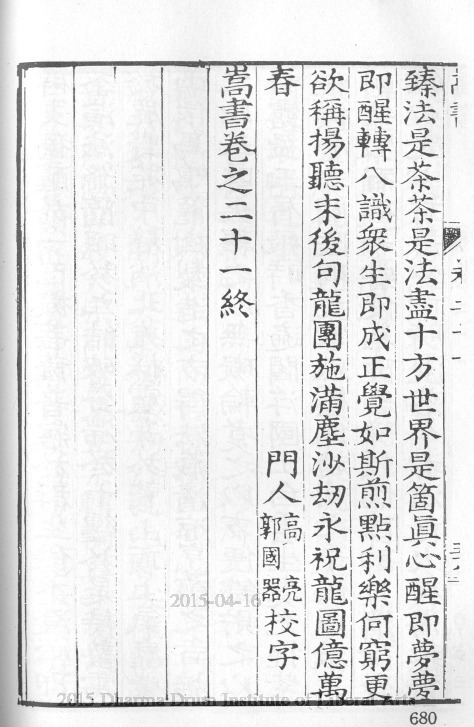 臻法是茶茶是法盡十方世界是箇眞心醒即夢夢
即醒轉八識衆生即成正覺如斯煎點利樂何窮更
欲稱揚聽末後句龍團施滿塵沙劫永祝龍圖億萬
春
門人高亮郭國器校字
嵩書卷之二十一終
2015-04-16
2015 Dharma Drum Institute of Liberal Arts
680